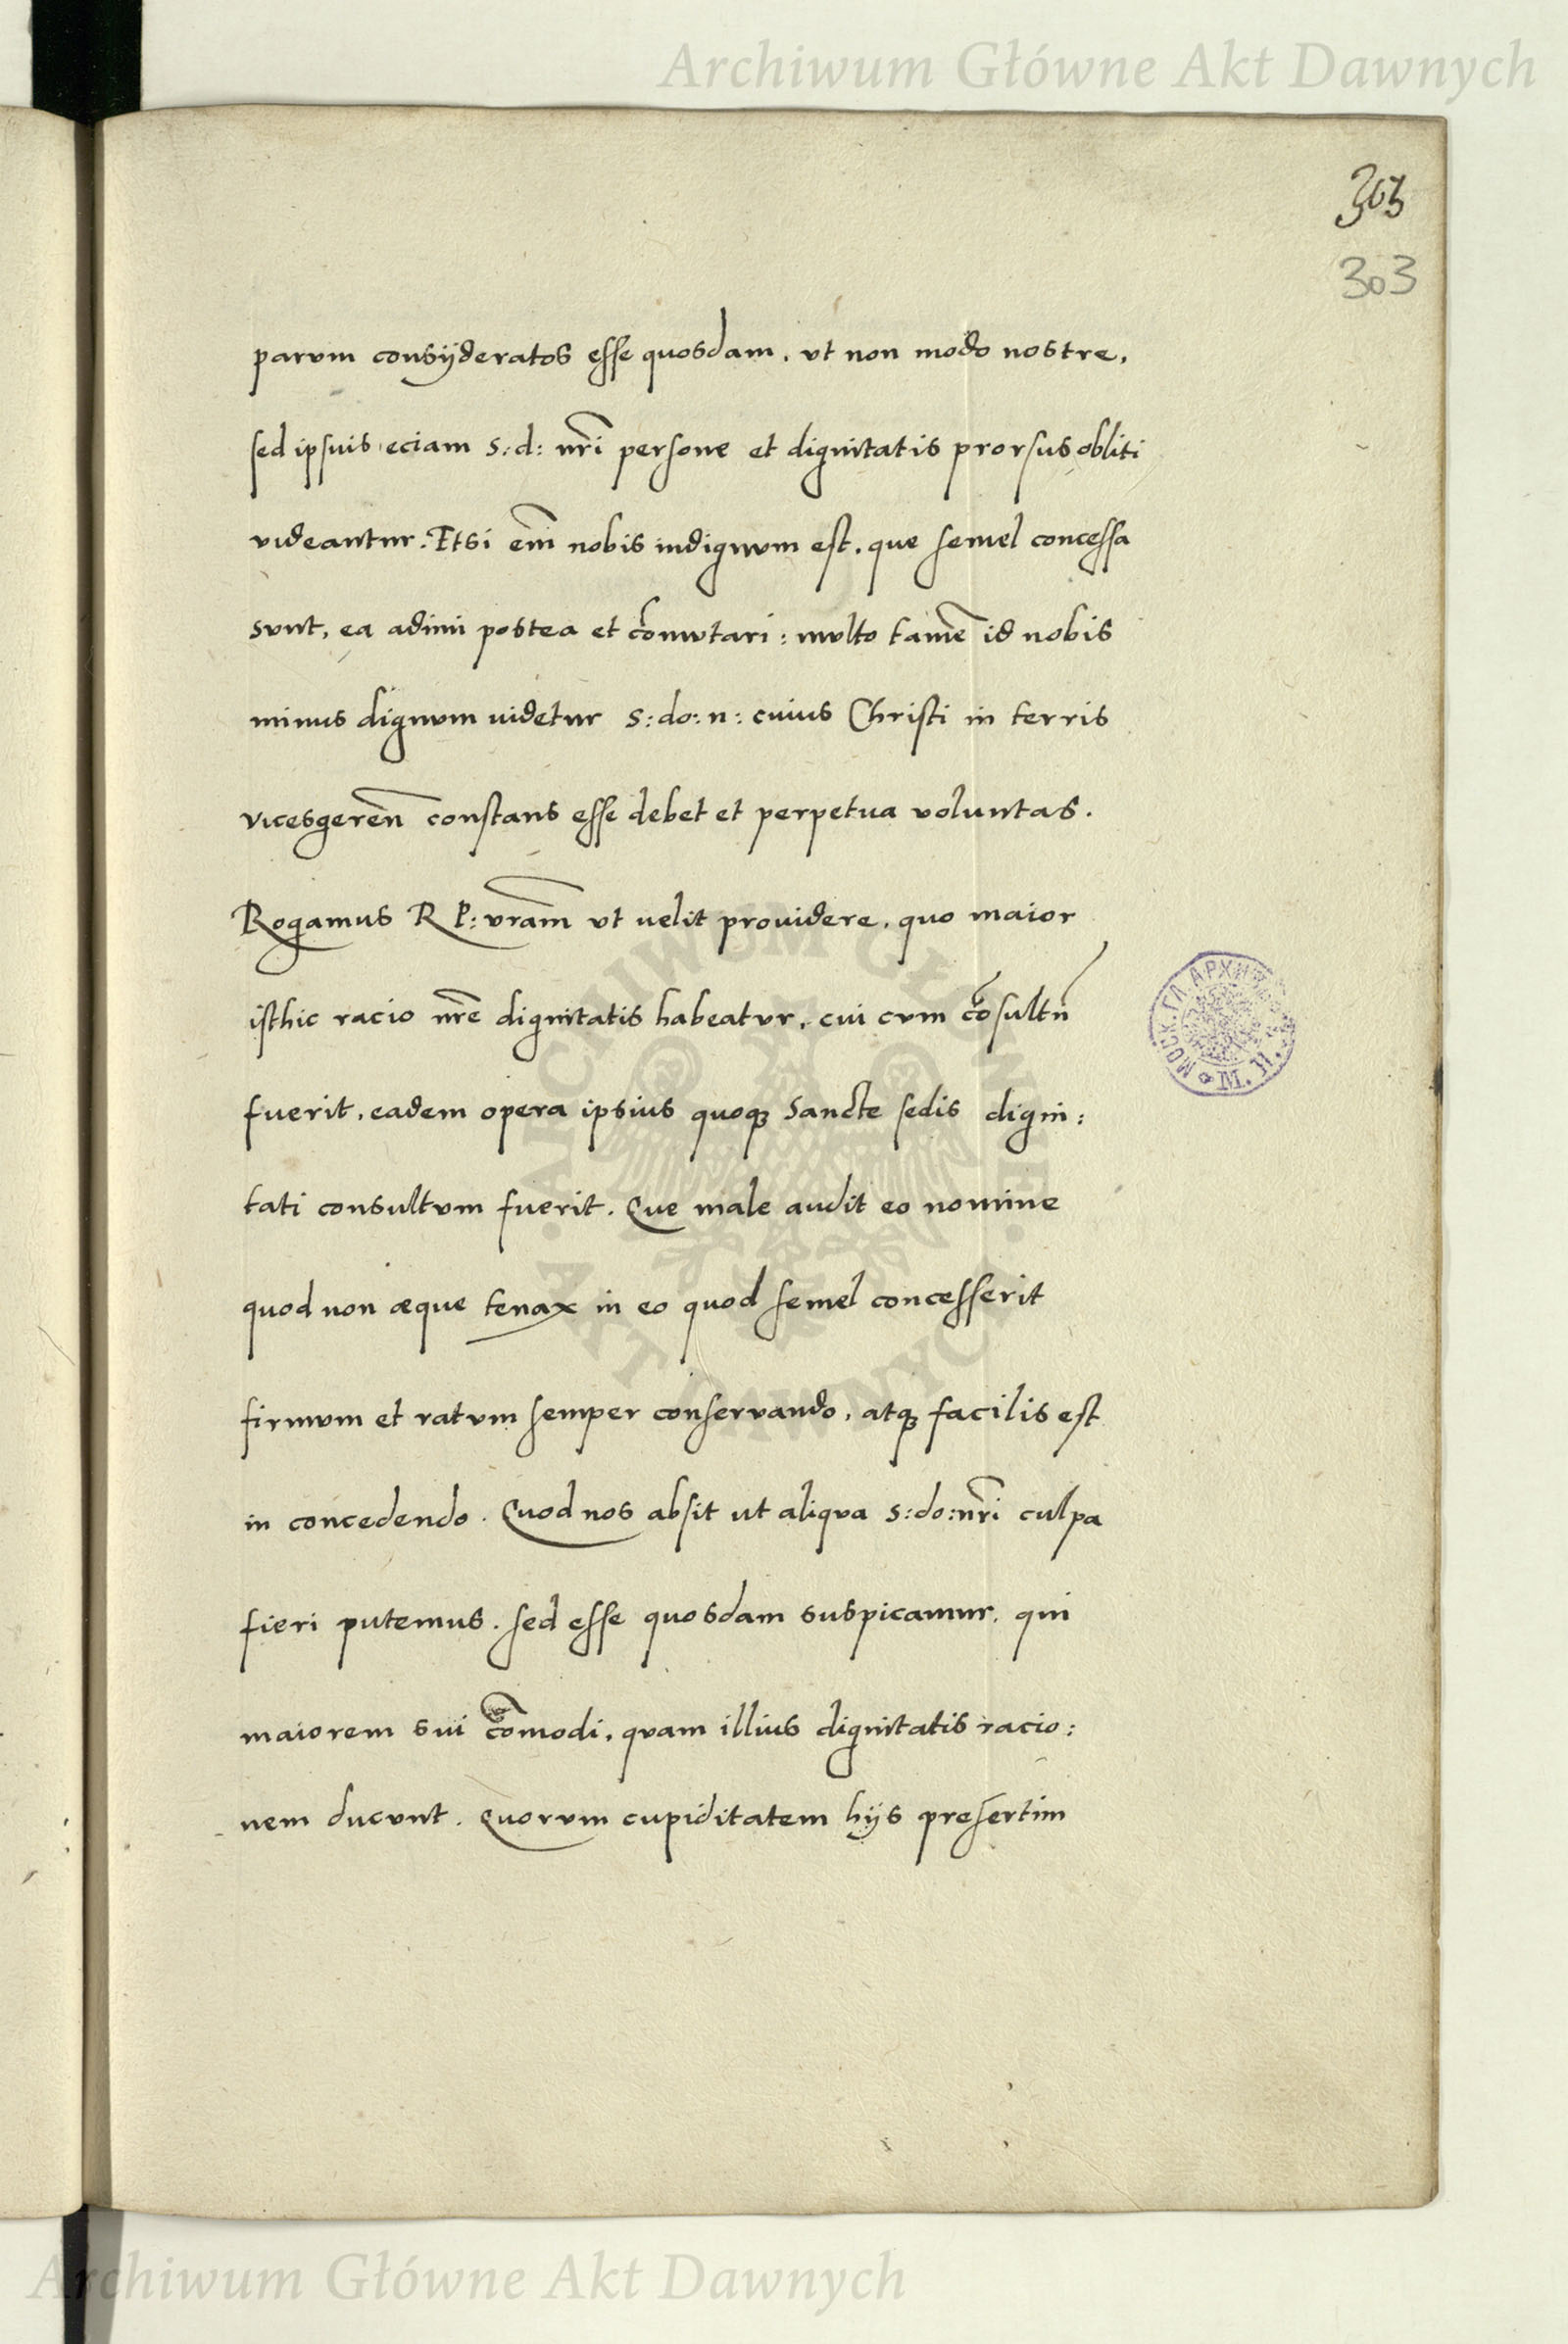 Archiwum Główne Akt Dawnych
303
303
parum consÿderatos esse quosdam, ut non modo nostre,
sed ipsuis eciam s: d: nri persone et dignitatis prorsus obliti
videantur. Etsi em nobis indignum est, que semel concessa
sunt, ea adimi postea et comutari: multo tame id nobis
minus dignum uidetur s: do: n: cuius Christi in terris
vicesgeren constans esse debet et perpetua voluntas.
Rogamus R P: vram ut uelit prouidere, quo maior
isthic racio nre dignitatis habeatur, cui cum cosultu
fuerit, eadem opera ipsius quoqz sancte sedis digni:
tati consultum fuerit. Que male audit eo nomine
quod non æque tenax in eo quod semel concesserit
firmum et ratum semper conseruando, atqz facilis est
in concedendo. Quod nos absit ut aliqua s: do: nri culpa
fieri putemus. sed esse quosdam suspicamur, qui
maiorem sui comodi, quam illius dignitatis racio:
nem ducunt. Quorum cupiditatem hijs presertim
ARCHIWUM GŁÓWNE AKT DAWNYCH
МОСК. ГЛ. АРХИВ М. И. Д.
Archiwum Główne Akt Dawnych